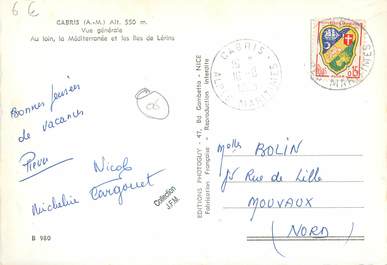 6 €
CABRIS (A.-M.) Alt. 550 m.
Vue générale
Au loin, la Méditerranée et les Iles de Lérins
Bonnes pensées
de vacances
06
Pierre
Nicole
Micheline Targonet
Collection
J.F.M.
B 980
EDITIONS PHOTOGUY - 47, Bd Gambetta - NICE
Fabrication Française - Reproduction interdite
CABRIS
ALPES MARITIMES
0,15
Melles BOLIN
75 Rue de Lille
MOUVAUX
(NORD)